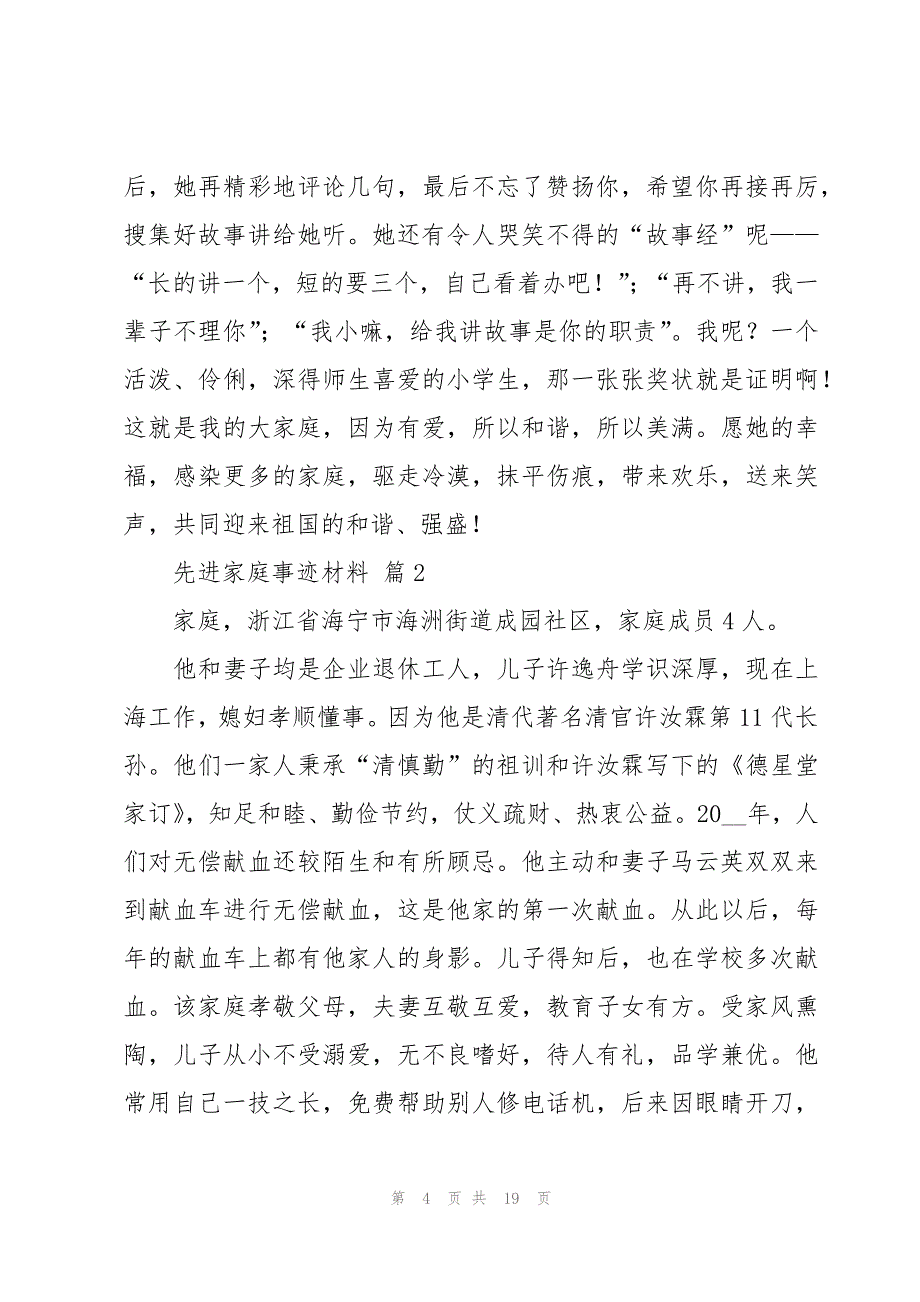 后，她再精彩地评论几句，最后不忘了赞扬你，希望你再接再厉，
搜集好故事讲给她听。她还有令人哭笑不得的“故事经”呢——
“长的讲一个，短的要三个，自己看着办吧！”；“再不讲，我一
辈子不理你”；“我小嘛，给我讲故事是你的职责”。我呢？一个
活泼、伶俐，深得师生喜爱的小学生，那一张张奖状就是证明啊！
这就是我的大家庭，因为有爱，所以和谐，所以美满。愿她的幸
福，感染更多的家庭，驱走冷漠，抹平伤痕，带来欢乐，送来笑
声，共同迎来祖国的和谐、强盛！
先进家庭事迹材料 篇2
家庭，浙江省海宁市海洲街道成园社区，家庭成员4人。
他和妻子均是企业退休工人，儿子许逸舟学识深厚，现在上
海工作，媳妇孝顺懂事。因为他是清代著名清官许汝霖第11代长
孙。他们一家人秉承“清慎勤”的祖训和许汝霖写下的《德星堂
家订》，知足和睦、勤俭节约，仗义疏财、热衷公益。20__年，人
们对无偿献血还较陌生和有所顾忌。他主动和妻子马云英双双来
到献血车进行无偿献血，这是他家的第一次献血。从此以后，每
年的献血车上都有他家人的身影。儿子得知后，也在学校多次献
血。该家庭孝敬父母，夫妻互敬互爱，教育子女有方。受家风熏
陶，儿子从小不受溺爱，无不良嗜好，待人有礼，品学兼优。他
常用自己一技之长，免费帮助别人修电话机，后来因眼睛开刀，
第 4 页 共 19 页